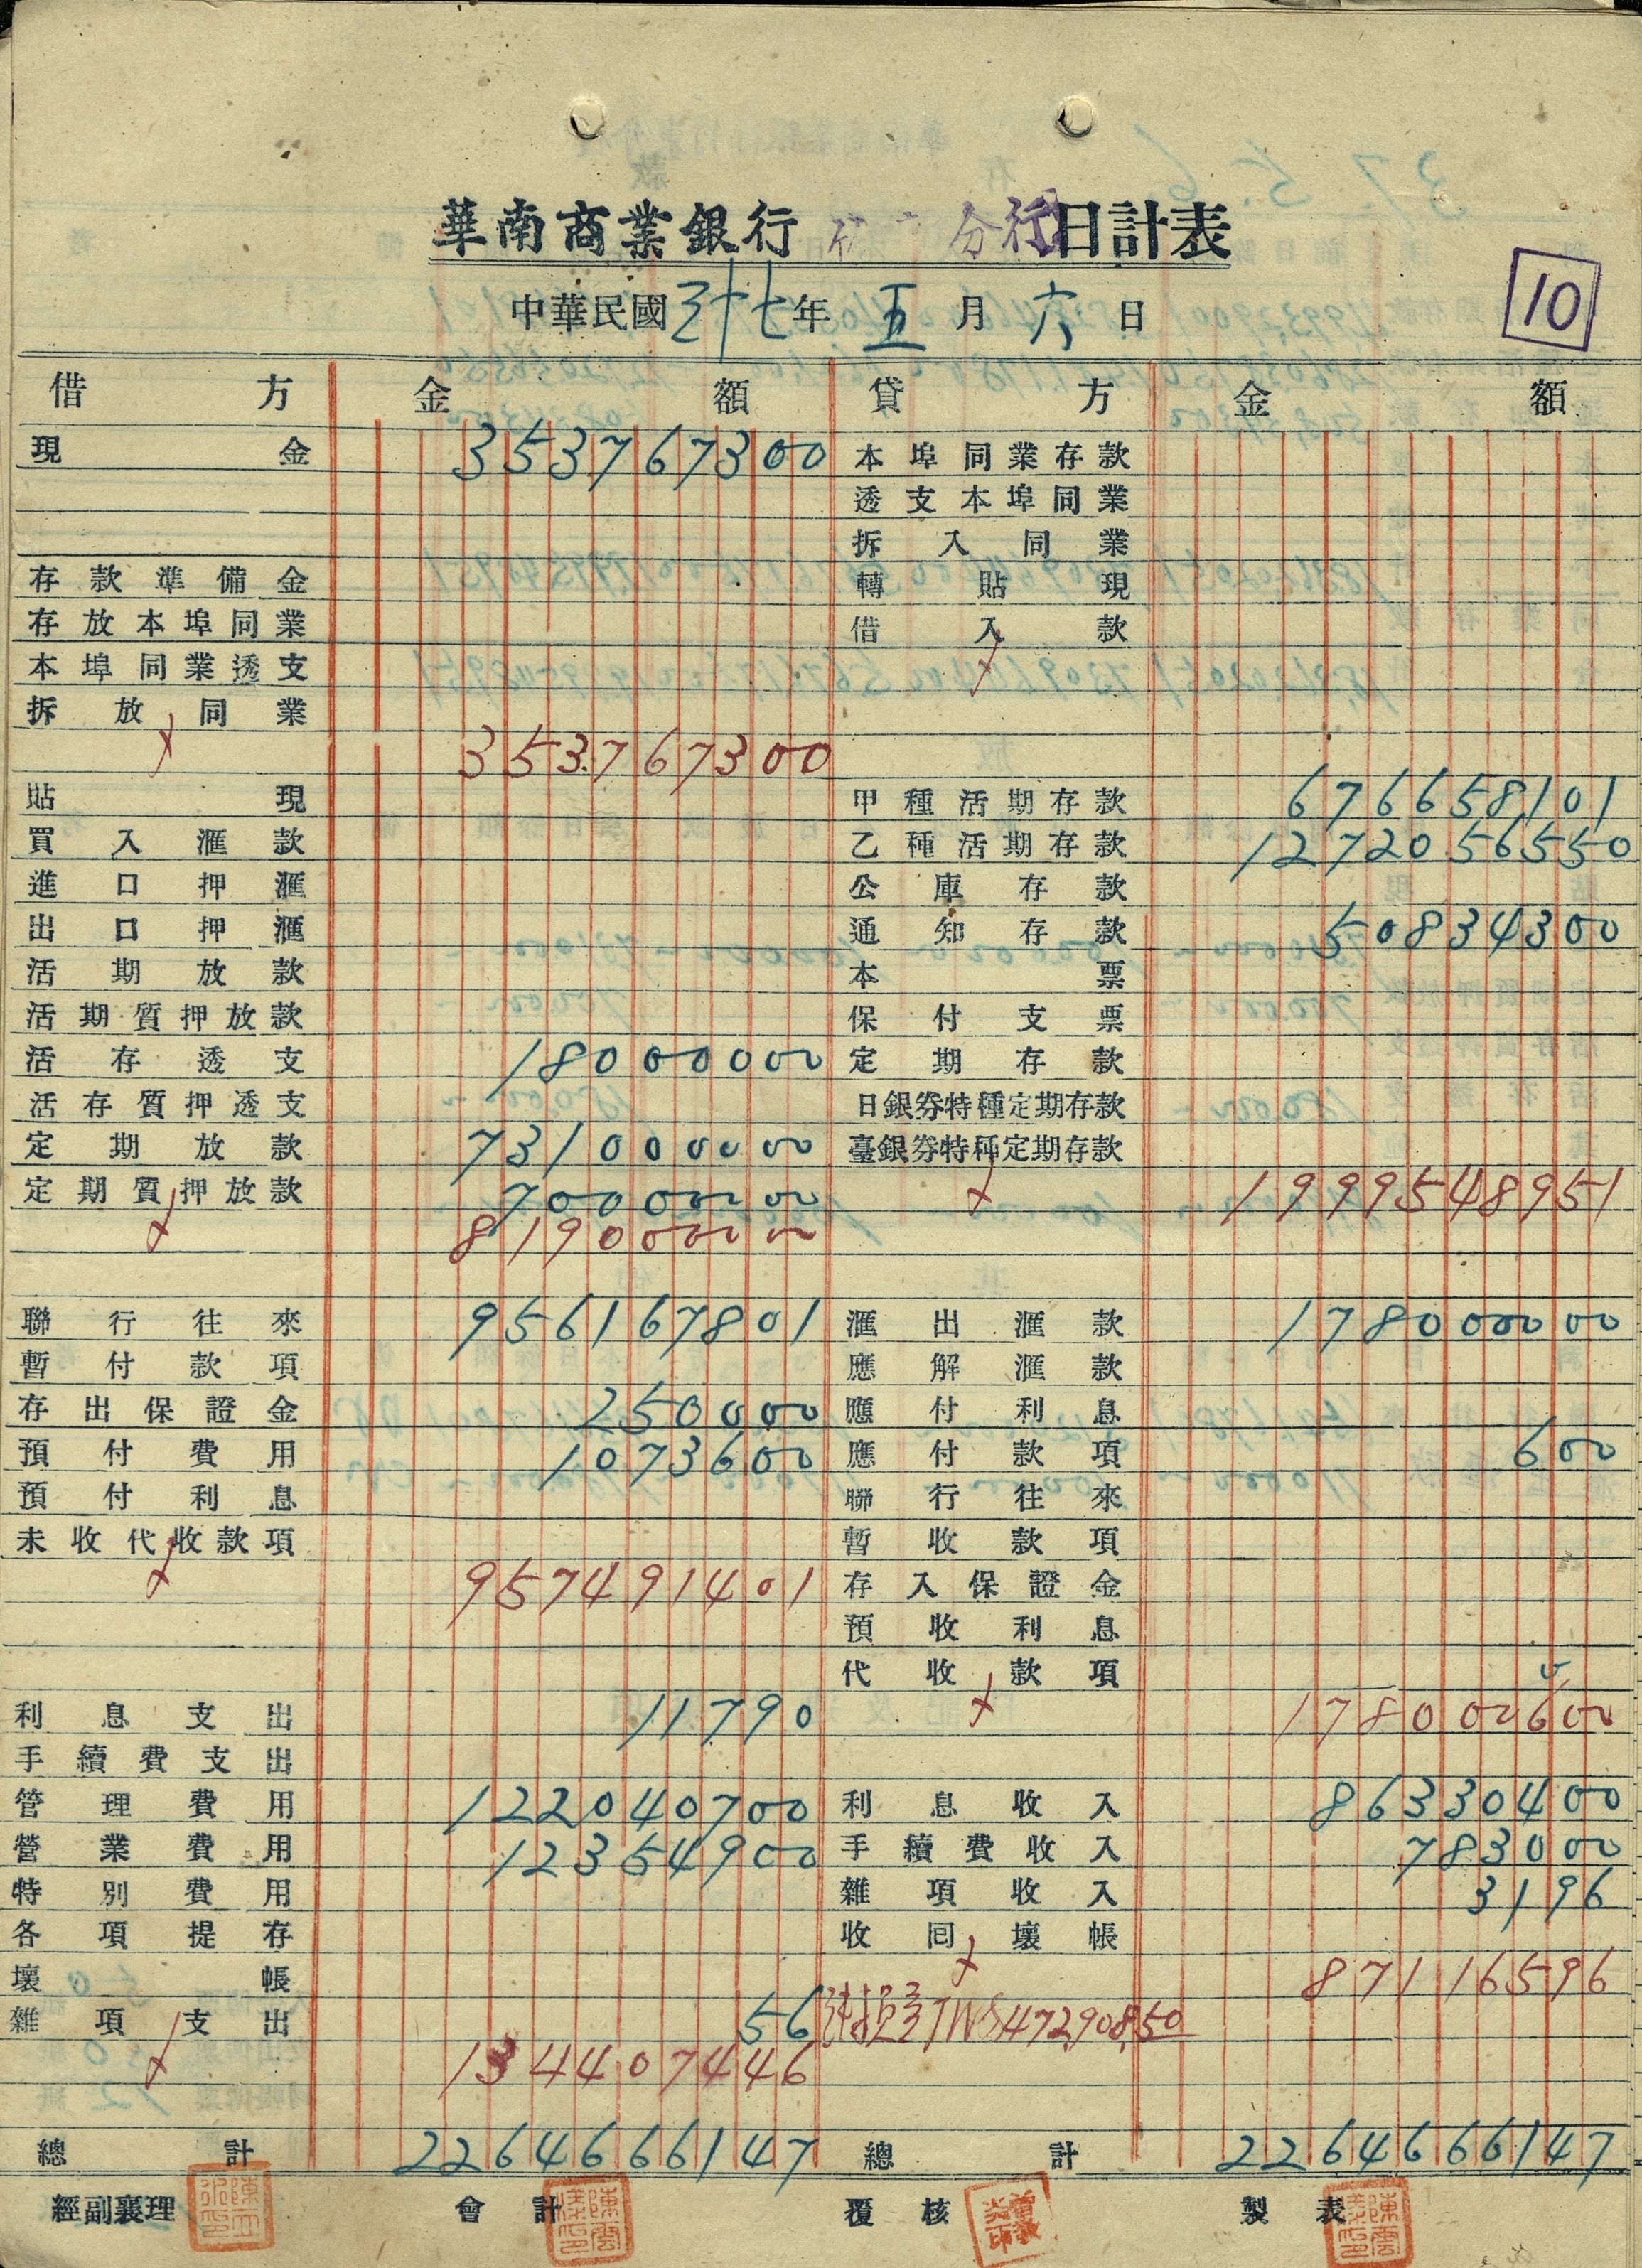 華南商業銀行 分行日計表
中華民國三十七年五月六日
10
借方 金額 貸方 金額
現金 353767300 本埠同業存款
透支本埠同業
拆入同業
存款準備金 轉貼現
存放本埠同業 借入款
本埠同業透支
拆放同業
353767300
貼現 甲種活期存款 676658101
買入滙款 乙種活期存款 1272056550
進口押滙 公庫存款
出口押滙 通知存款 50834300
活期放款 本票
活期質押放款 保付支票
活存透支 18000000 定期存款
活存質押透支 日銀券特種定期存款
定期放款 731000000 臺銀券特種定期存款
定期質押放款 70000000 1999548951
819000000
聯行往來 956167801 滙出滙款 178000000
暫付款項 應解滙款
存出保證金 250000 應付利息
預付費用 1073600 應付款項 600
預付利息 聯行往來
未收代收款項 暫收款項
957491401 存入保證金
預收利息
代收款項
利息支出 11790 178000600
手續費支出
管理費用 122040700 利息收入 86330400
營業費用 12354900 手續費收入 783000
特別費用 雜項收入 3196
各項提存 收回壞帳
壞帳 87116596
雜項支出 56 純損 TW$472,908.50
134407446
總計 2264666147 總計 2264666147
經副襄理 會計 覆核 製表